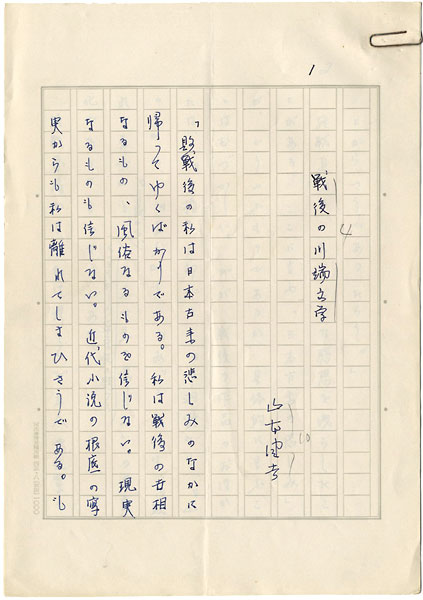 1
4
戦後の川端文学
山本健吉
10
「敗戦後の私は日本古来の悲しみのなかに
帰ってゆくばかりである。私は戦後の世相
なるもの、風俗なるものを信じない。現実
なるものも信じない。近代小説の根底の寫
実からも私は離れてしまひさうである。も